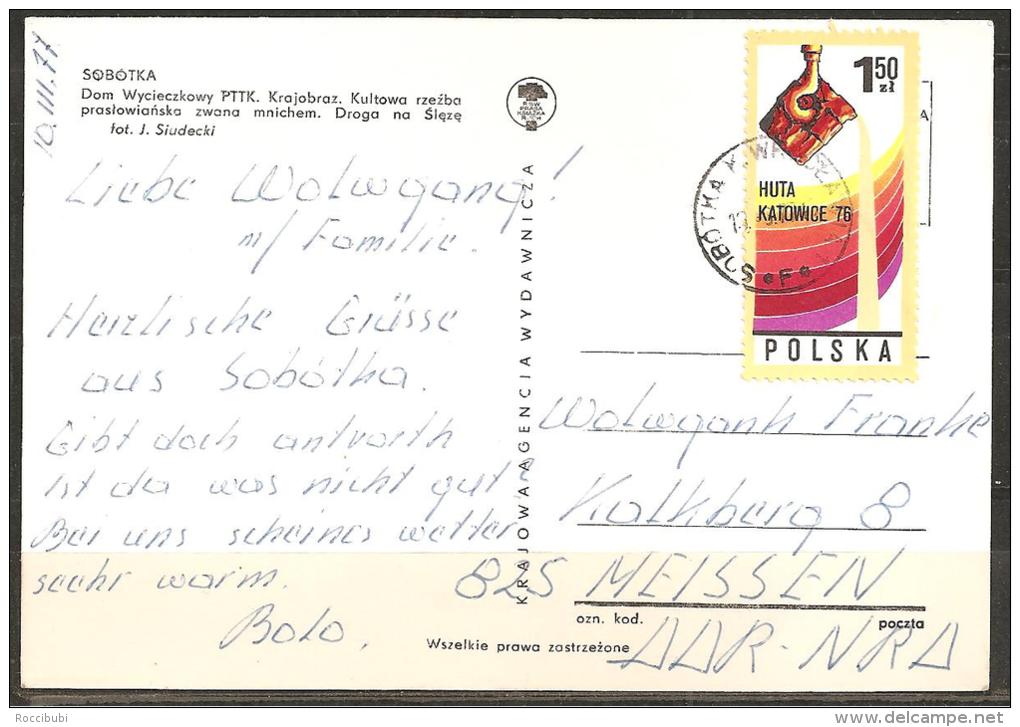 10.III.77
SOBÓTKA
Dom Wycieczkowy PTTK. Krajobraz. Kultowa rzeźba
prasłowiańska zwana mnichem. Droga na Ślęzę
fot. J. Siudecki
Liebe Wolwgang!
m/ Familie.
Herzlische Grüsse
aus Sobótka.
Gibt doch antvorth
ist da was nicht gut?
Bei uns scheines wetter
seehr warm.
Bolo.
RSW
PRASA
KSIĄŻKA
RUCH
KRAJOWA AGENCJA WYDAWNICZA
1 50
zł
HUTA
KATOWICE '76
POLSKA
SOBÓTKA K.
*F*
A
Wolwganh Franke
Kalkberg 8
825 MEISSEN
ozn. kod. poczta
DDR-NRD
Wszelkie prawa zastrzeżone
Roccibubi
www.delcampe.net